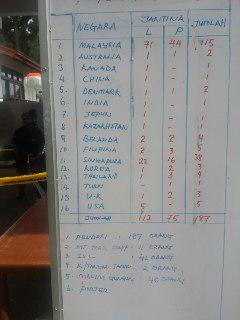 NEGARA JANTINA JUMLAH
L P
1. MALAYSIA 71 44 115
2 AUSTRALIA 1 1 2
3 KANADA 1 - 1
4 CHINA - 1 1
5. DENMARK 1 1 2
6 INDIA - 1 1
7 JEPUN 1 - 1
8 KAZAKHSTAN 1 - 1
9 BELANDA 2 2 4
10 FILIPINA 2 3 5
11 SINGAPURA 22 16 38
12 KOREA 1 2 3
13 THAILAND
14 TURKI - 1 1
15 U.K 1 2 3
16 USA 5 - 5
JUMLAH 112 75 187
1. PENDAKI : 187 ORANG
2. ORANG
3. 42 ORANG
4. 2 ORANG
5. ORANG
6. PORTER